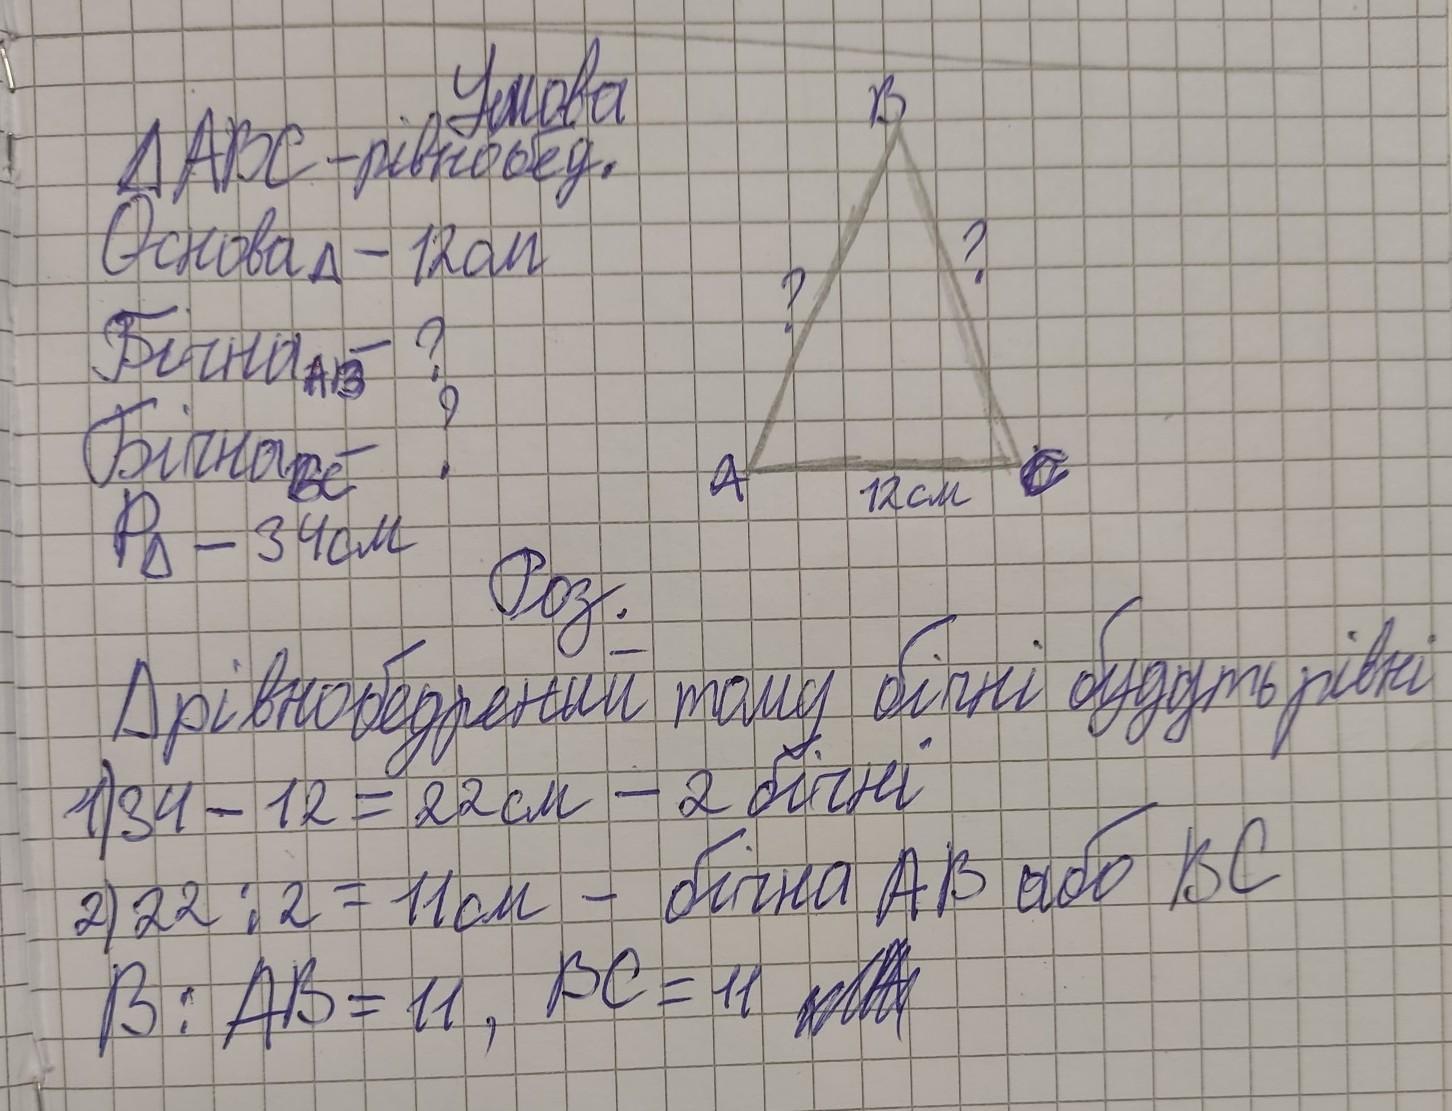 Умова
Δ ABC - рівнобед.
Основа Δ - 12см
Бічна AB - ?
Бічна BC - ?
P Δ - 34см
B
?
?
A
C
12см
Роз.
Δ рівнобедрений тому бічні будуть рівні
1) 34 - 12 = 22см - 2 бічні
2) 22 : 2 = 11см - бічна AB або BC
В: AB = 11, BC = 11